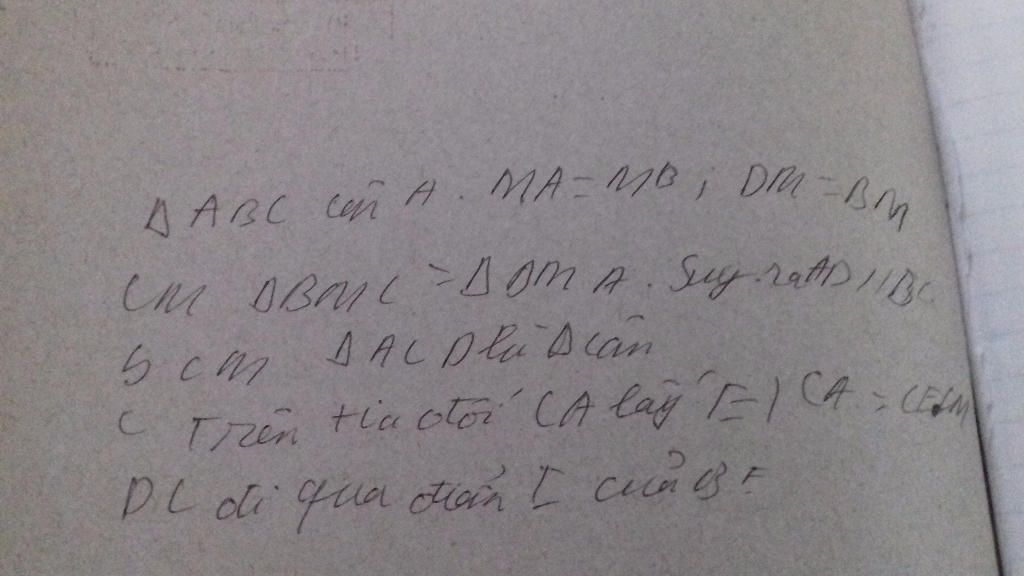 Δ ABC cân A. MA = MB; DM = BM
CM ΔBMC = ΔDMA. Suy ra AD // BC
b CM ΔACD là Δ cân
C Trên tia đối CA lấy E / CA = CE. CM
DC đi qua điểm I của BE